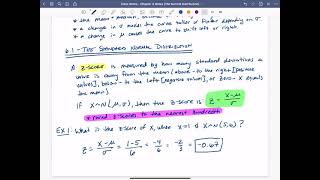 Class Notes - Chapter 6 Notes (The Normal Distribution)
* a change in σ makes the curve taller or flatter depending on σ.
* a change in μ causes the curve to shift left or right.
6.1 - THE STANDARD NORMAL DISTRIBUTION
A z-score is measured by how many standard deviations a
value is away from the mean (above - to the right [positive
values], below - to the left [negative values], or zero - X equals
the mean)
If X~N(μ,σ), then the z-score is z = x-μ / σ
* round z-scores to the nearest hundredth
EX 1: What is the z-score of X, when x=1 & X~N(5,6)?
z = x-μ / σ = 1-5 / 6 = -4 / 6 = -2 / 3 = -0.67